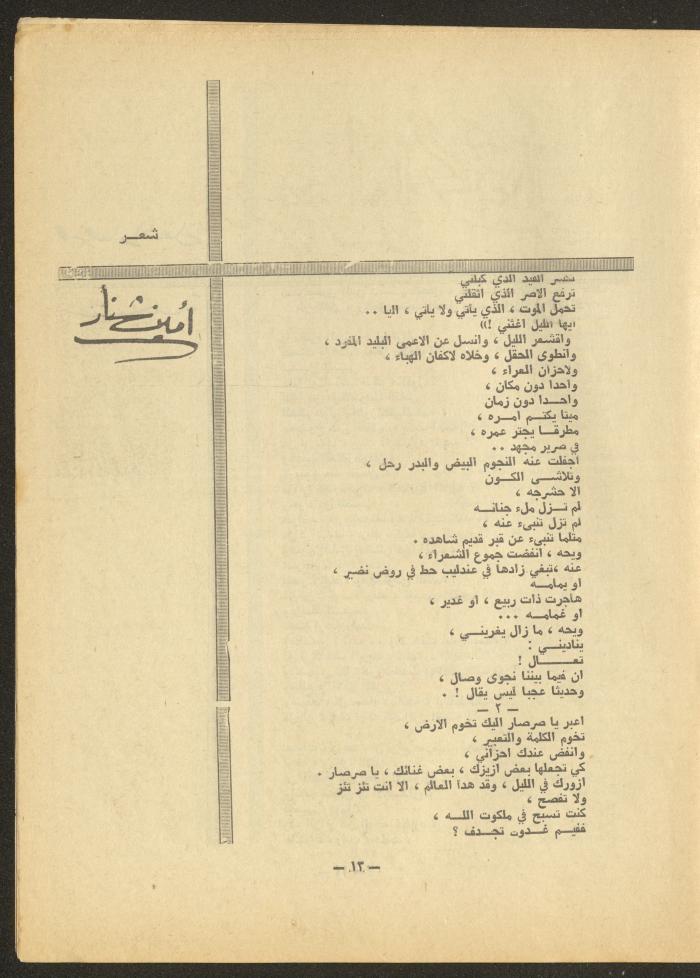 شعــر
أمين شنار
تكسر القيد الذي كبلني
ترفع الاصر الذي أثقلني
تحمل الموت ، الذي يأتي ولا يأتي ، اليا ..
ايها الليل اغثني !))
واقشعر الليل ، وانسل عن الاعمى البليد المفرد ،
وانطوى الحقل ، وخلاه لاكفان الهباء ،
ولاحزان العراء ،
واحدا دون مكان ،
واحــدا دون زمان
ميتا يكتــم أمــره ،
مطرقــا يجتر عمره ،
في صرير مجهد ..
اجفلت عنه النجوم البيض والبدر رحل ،
وتلاشــى الكــون
الا حشرجه ،
لم تــزل ملء جنانــه
لم تزل تنبىء عنه ،
مثلما تنبىء عن قبر قديم شاهده .
ويحه ، انفضت جموع الشعراء ،
عنه ،تبغي زادها في عندليب حط في روض نضير ،
او يمامــه
هاجرت ذات ربيع ، او غدير ،
او غمامــه ...
ويحه ، ما زال يغرينــي ،
ينادينــي :
تعــــــال !
ان فيما بيننا نجوى وصال ،
وحديثا عجبا ليس يقال ! .
— ٢ —
اعبر يا صرصار اليك تخوم الارض ،
تخوم الكلمة والتعبير ،
وانفض عندك احزاني ،
كي تجعلها بعض ازيزك ، بعض غنائك ، يا صرصار .
ازورك في الليل ، وقد هدأ العالم ، الا انت تئز تئز
ولا تفصح ،
كنت تسبح في ملكوت اللــه ،
ففيــم غــدوت تجــدف ؟
— ١٣ —